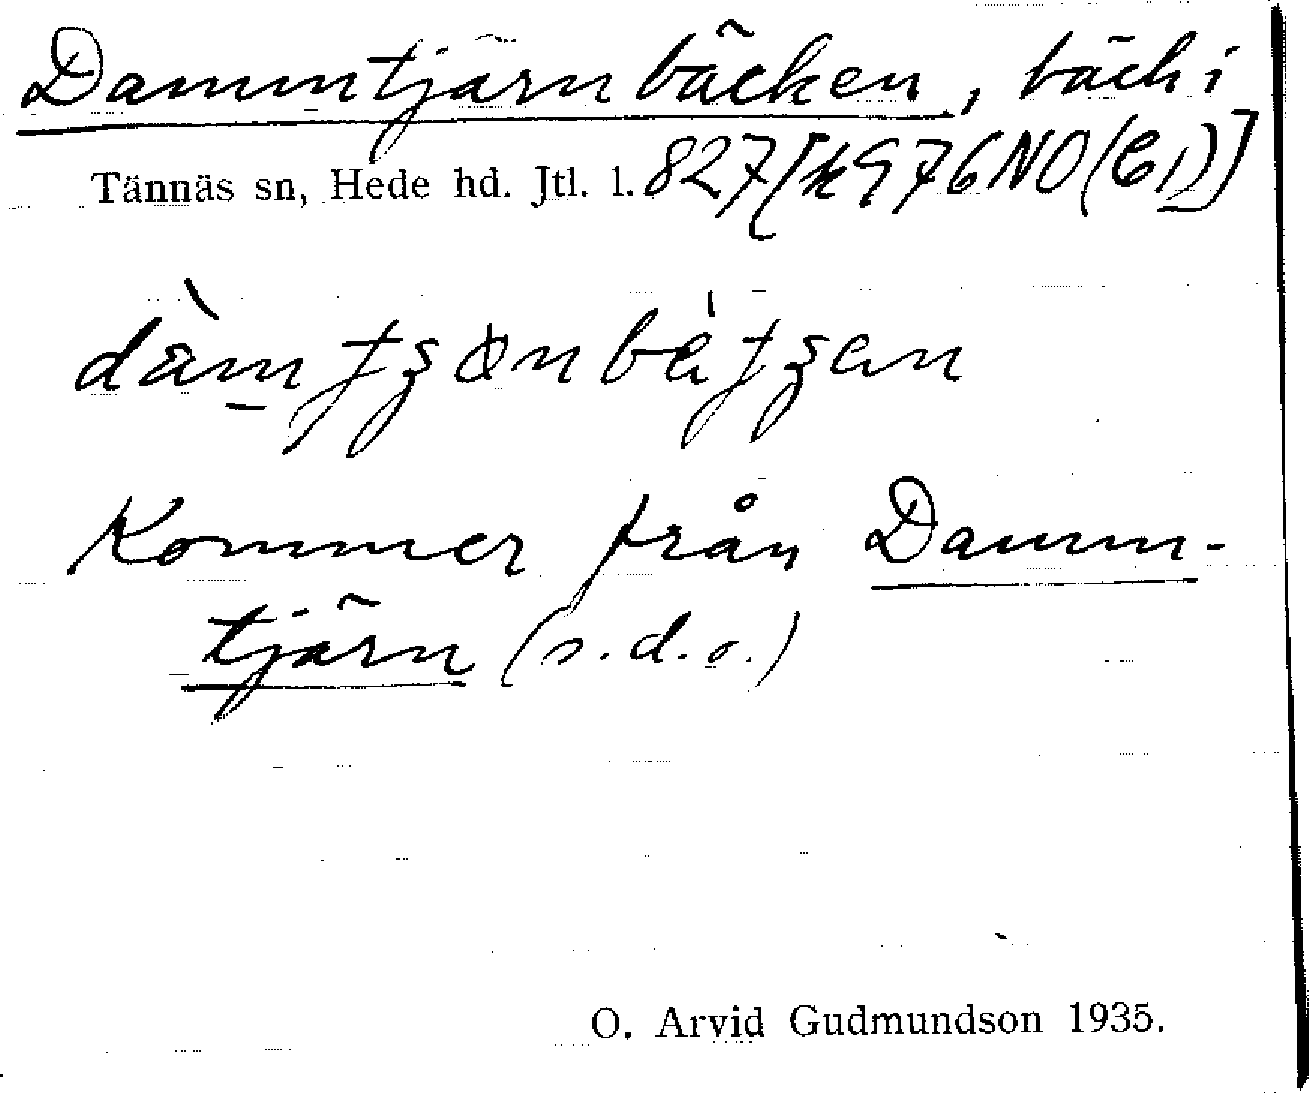 Dammtjärnbäcken, bäck i
Tännäs sn, Hede hd. Jtl. l. 827 [k976NO(C1)]
Kommer från Damm-
tjärn (s.d.o.)
O. Arvid Gudmundson 1935.